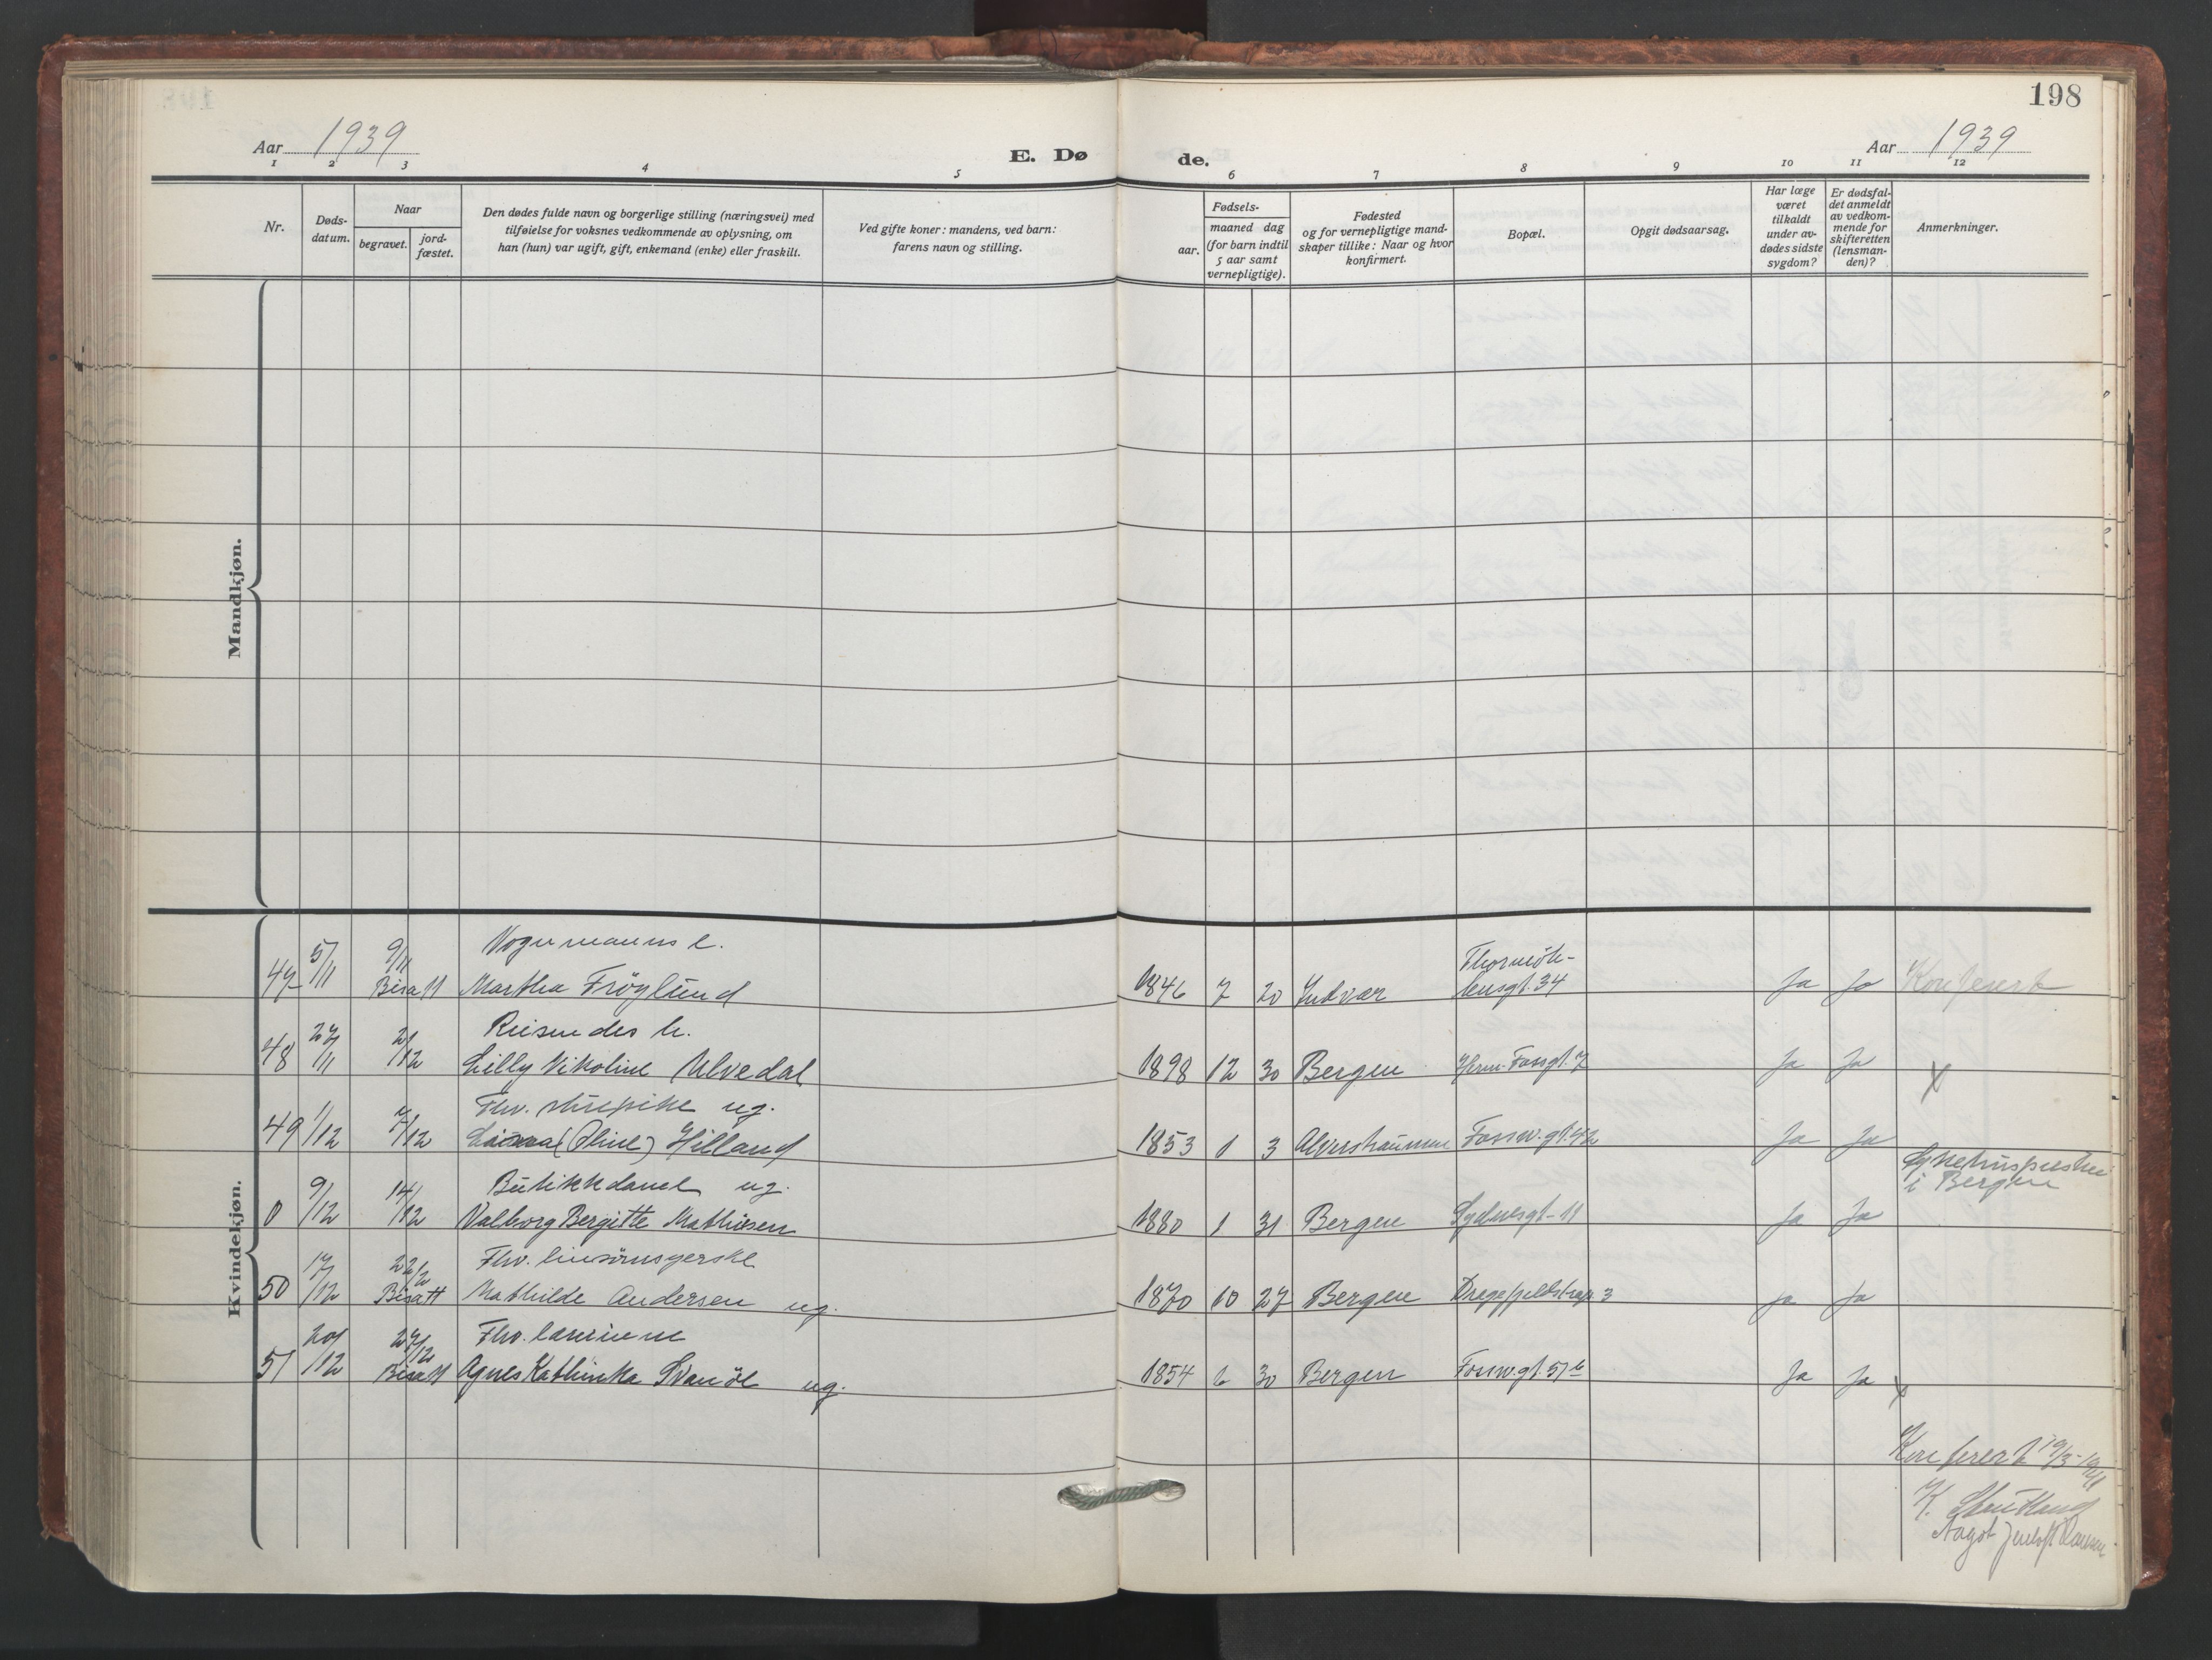 198
Aar 1939
E. Dø
de.
Aar 1939
1 2 3 4 5 6 7 8 9 10 11 12
Nr.
Døds-
datum.
Naar
begravet.
jord-
fæstet.
Den dødes fulde navn og borgerlige stilling (næringsvei) med
tilføielse for voksnes vedkommende av oplysning, om
han (hun) var ugift, gift, enkemand (enke) eller fraskilt.
Ved gifte koner: mandens, ved barn:
farens navn og stilling.
Fødsels-
aar.
maaned dag
(for barn indtil
5 aar samt
vernepligtige).
Fødested
og for vernepligtige mand-
skaper tillike: Naar og hvor
konfirmert.
Bopæl.
Opgit dødsaarsag.
Har læge
været
tilkaldt
under av-
dødes sidste
sygdom?
Er dødsfal-
det anmeldt
av vedkom-
mende for
skifteretten
(lensman-
den)?
Anmerkninger.
Mandkjøn.
Kvindekjøn.
Vognmanns e.
47 5/11 9/11 Bisatt Martha Frøylund 1846 7 20 Thormøh-
lensgt. 34 Ja Ja Konferert
Reisendes h.
48 27/11 2/12 Lilly Nikoline Ulvedal 1898 12 30 Bergen Herm. Fossgt. 7 Ja Ja x
Fhv. ug.
49 1/12 7/12 (Oline) Hilland 1853 1 3 Alverstraumen Fossw. gt. 42 Ja Ja
Butikkdame ug.
Sykehuspresten
i Bergen
0 9/12 14/12 Valborg Bergitte Mathisen 1880 1 31 Bergen Sydnesgt. 11 Ja Ja
Fhv. linsømsyerske
50 17/12 22/12 Bisatt Mathilde Andersen ug. 1870 10 27 Bergen Dragefjeldstrap 3 Ja Ja
Fhv. lærerinne
51 20/12 27/12 Bisatt Agnes Kathinka Svanøe ug. 1854 6 30 Bergen Fossw. gt. 51 b Ja Ja x
Konferert 19/3-1941
K.
Aagot